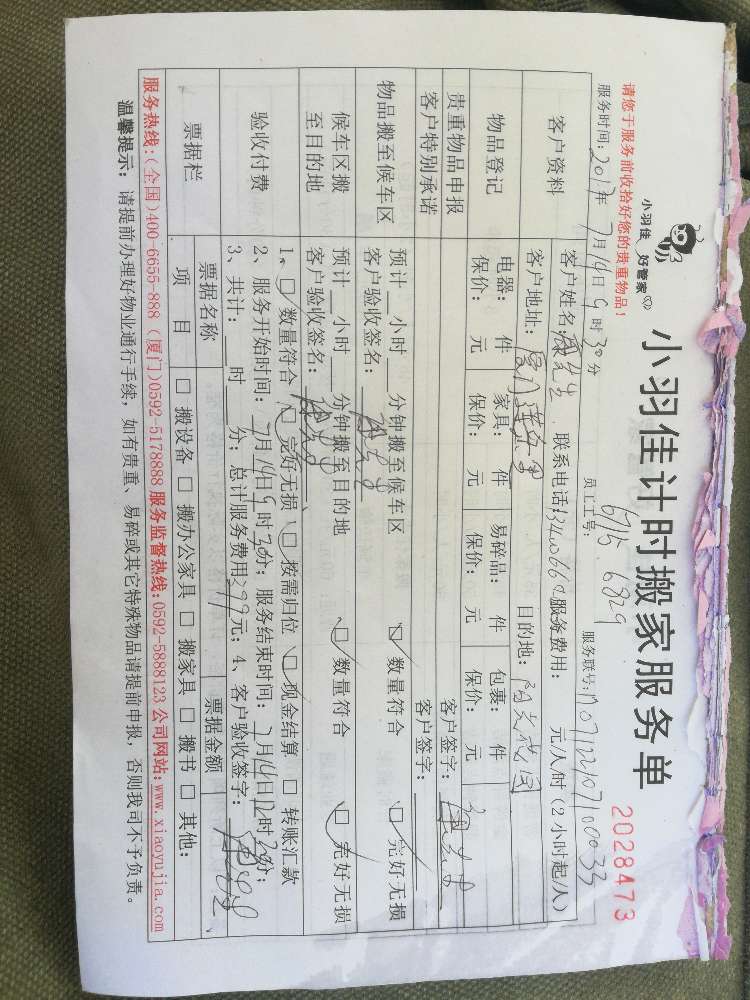 小羽佳 好管家
小羽佳计时搬家服务单
2028473
请您于服务前收拾好您的贵重物品!
员工工号: 6829
服务联号:
服务时间: 2017年7月14日9时30分
客户资料
客户姓名: 先生 联系电话: 服务费用: 元/人/时 (2小时起/人)
客户地址: 目的地:
物品登记
电器: 件 家具: 件 易碎品: 件 包裹: 件
保价: 元 保价: 元 保价: 元 保价: 元
贵重物品申报 客户签字:
客户特别承诺 客户签字:
物品搬至候车区
预计__小时__分钟搬至候车区 ☑数量符合 ☑完好无损
客户验收签名:
候车区搬至目的地
预计__小时__分钟搬至目的地 □数量符合 ☑完好无损
客户验收签名:
验收付费
1、☑数量符合 ☑完好无损 ☑按需归位 ☑现金结算 □转账汇款
2、服务开始时间: 7月14日9时30分; 服务结束时间: 7月14日12时30分;
3、共计:__时__分; 总计服务费用297元; 4、客户验收签字:
票据栏
票据名称 票据金额
项 目 □搬设备 □搬办公家具 □搬家具 □搬书 □其他:
服务热线:(全国)400-6655-888 (厦门)0592-5178888 服务监督热线:0592-5888123 公司网站:www.xiaoyujia.com
温馨提示: 请提前办理好物业通行手续, 如有贵重、易碎或其它特殊物品请提前申报, 否则我司不予负责。